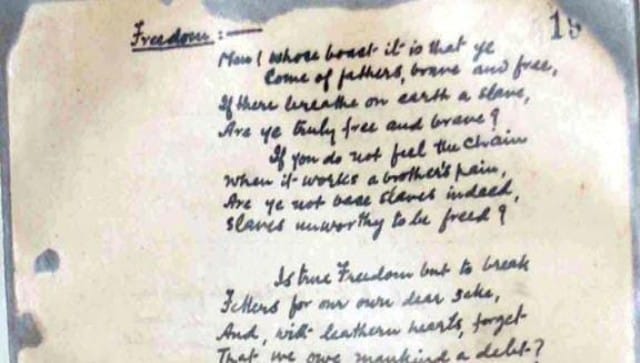 19
Freedom :—
Men! whose boast it is that ye
Come of fathers, brave and free,
If there breathe on earth a slave,
Are ye truly free and brave?
If you do not feel the chain
When it works a brother's pain,
Are ye not base slaves indeed,
Slaves unworthy to be freed?
Is true Freedom but to break
Fetters for our own dear sake,
And, with leathern hearts, forget
That we owe mankind a debt?